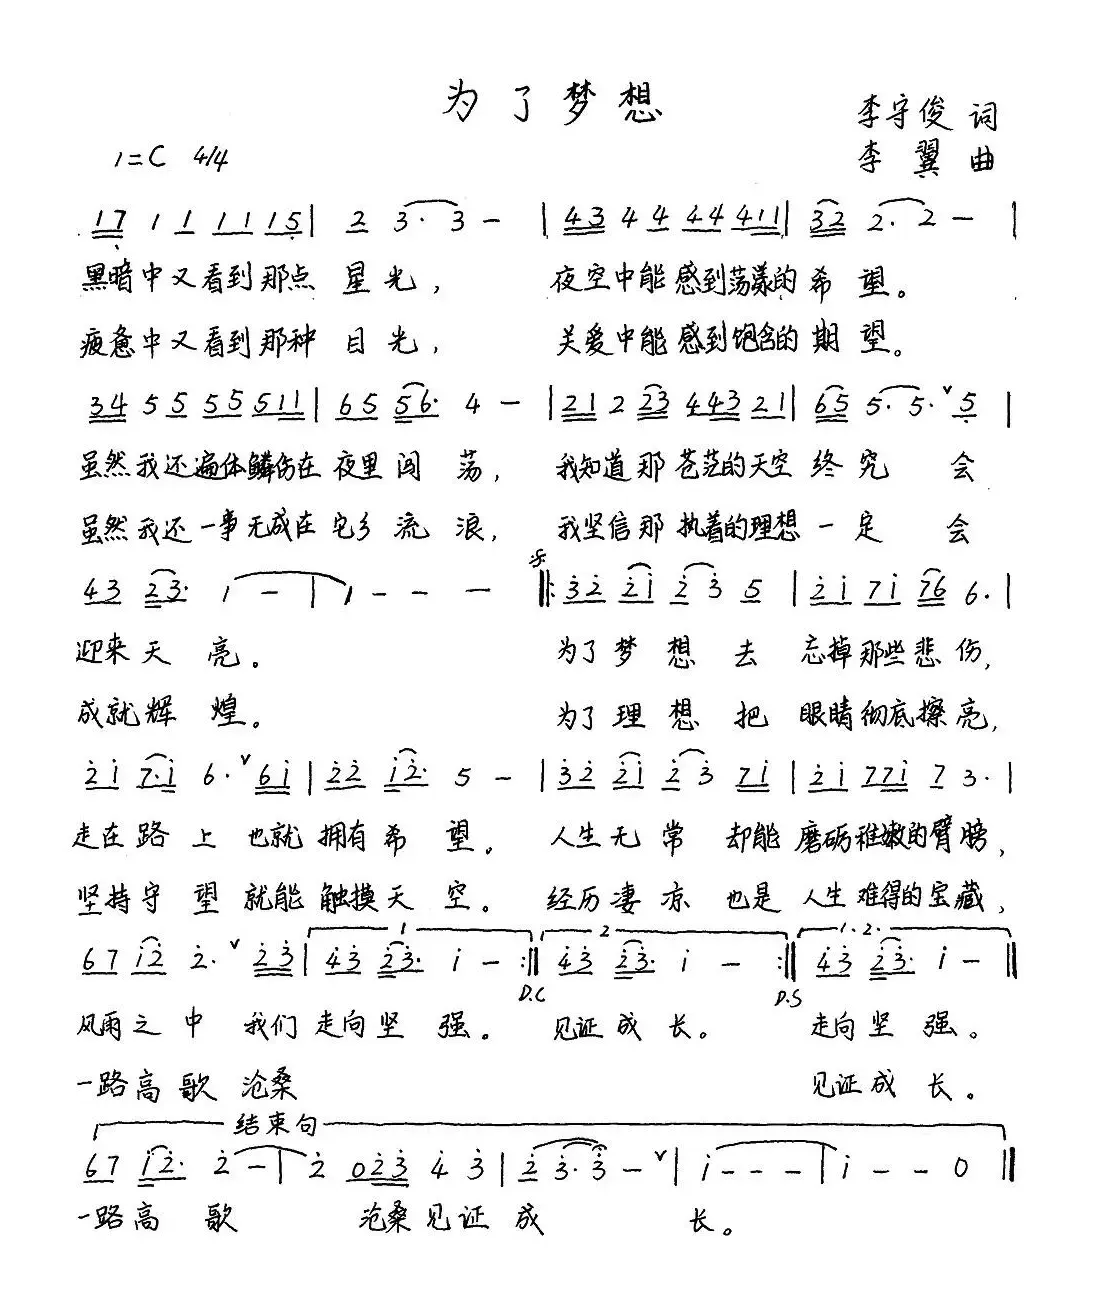 为了梦想
李守俊 词
1=C 4/4
李翼 曲
17 1 1 11 15 | 2 3· 3 — | 43 4 4 44 411 | 32 2· 2 — |
黑暗中又看到那点 星 光， 夜空中能感到荡漾的希 望。
疲惫中又看到那种 目 光， 关爱中能感到饱含的期 望。
34 5 5 55 511 | 65 56· 4 — | 21 2 23 443 21 | 65 5· 5· ∨ 5 |
虽然我还遍体鳞伤在 夜里闯 荡， 我知道那苍茫的天空 终 究 会
虽然我还一事无成在 它乡 流 浪， 我坚信那执着的理想 一 定 会
43 23· i — | i — — — 32 2i 2 3 5 | 2i 7i 76 6· |
迎来天 亮。 为了梦 想 去 忘掉那些悲伤，
成就辉 煌。 为了理 想 把 眼睛彻底擦亮，
2i 7·i 6· ∨ 6i | 22 i2· 5 — | 32 2i 2 3 7i | 2i 77i 7 3· |
走在路 上 也就 拥有希 望。 人生无 常 却能 磨砺稚嫩的臂膀，
坚持守 望 就能 触摸天 空。 经历凄 凉 也是 人生难得的宝藏，
1 2 1.2.
67 i2 2· ∨ 23 | 43 23· i — :‖ 43 23· i — :‖ 43 23· i — ‖
D.C D.S
风雨之 中 我们 走向坚 强。 见证成 长。 走向坚 强。
一路高 歌 沧桑 见证成 长。
结束句
67 i2· 2 — | 2 023 4 3 | 2 3· 3 — ∨ | i — — — | i — — 0 ‖
一路高 歌 沧桑见证 成 长。